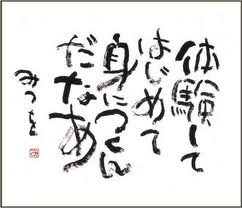 体験して
はじめて
身につくん
だなあ
みつを